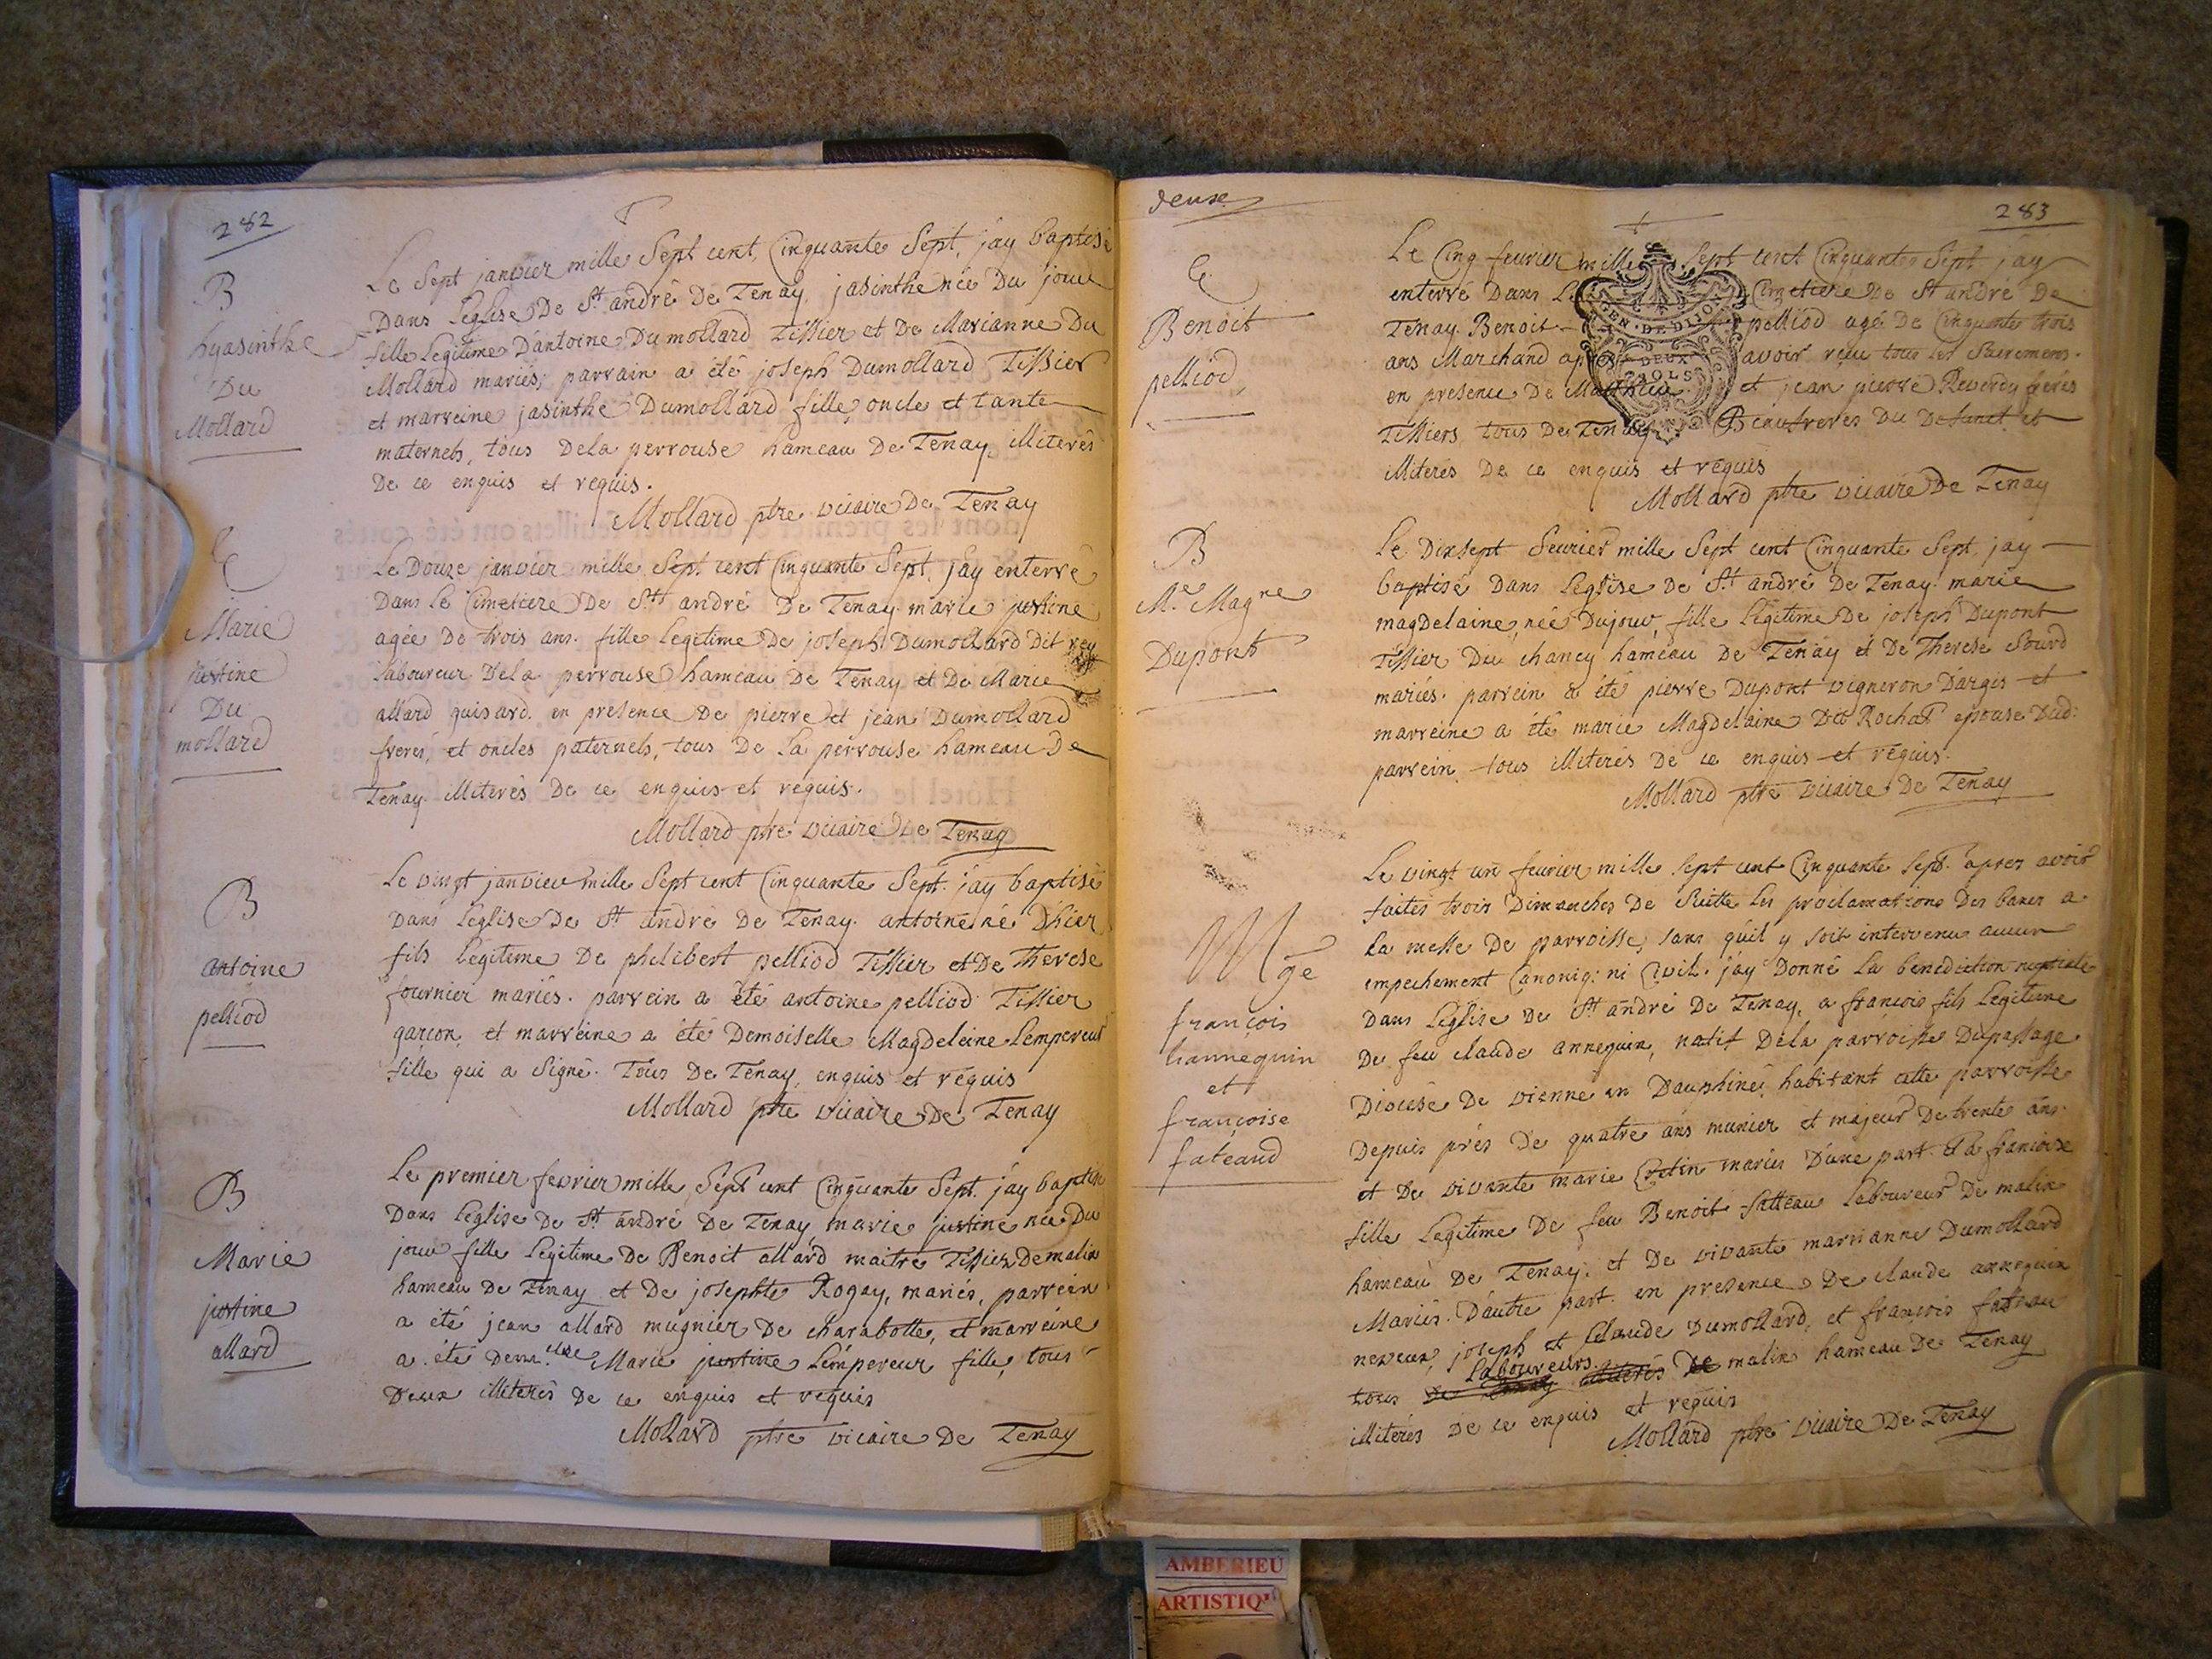 282
B
hyasinthe
Du
Mollard
Le Sept janvier mille Sept cent Cinquante Sept, jay baptisé
Dans Leglise De St andré De Tenay jasinthe née Du jour
fille Legitime D'antoine Dumollard Tissier et De Marianne Du
Mollard mariés, parrain a été joseph Dumollard Tissier
et marreine jasinthe Dumollard fille, oncle et tante
maternels, tous Dela perrouse hameau De Tenay illiterés
De ce enquis et requis.
Mollard ptre vicaire De Tenay
E
Marie
justine
Du
mollard
Le Douze janvier mille Sept cent Cinquante Sept, jay enterré
Dans Le Cimetiere De St andré De Tenay marie justine
agée De trois ans fille legitime De joseph Dumollard Dit rey
laboureur Dela perrouse hameau De Tenay et De Marie
allard guisard. en presence De pierre et jean Dumollard
freres, et oncles paternels, tous De la perrouse hameau De
Tenay illiterés De ce enquis et requis.
Mollard ptre vicaire De Tenay
B
antoine
pelliod
Le vingt janvier mille Sept cent Cinquante Sept. jay baptisé
Dans Leglise De St andré De Tenay antoine né D'hier
fils legitime De philibert pelliod Tissier et De Therese
fournier mariés. parrein a été antoine pelliod Tissier
garçon, et marreine a été Demoiselle Magdeleine Lempereur
fille qui a Signé. Tous De Tenay, enquis et requis
Mollard ptre vicaire De Tenay
B
Marie
justine
allard
Le premier fevrier mille Sept cent Cinquante Sept. jay baptisé
Dans Leglise De St andré De Tenay marie justine née Du
jour fille Legitime De Benoit allard maitre Tissier De malix
hameau De Tenay et De josephte Rogay, mariés, parrein
a été jean allard mugnier De charabotte, et marreine
a été Dem.elle Marie justine Lempereur fille, tous
Deux illiterés De ce enquis et requis
Mollard ptre vicaire De Tenay
deux
283
E
Benoit
pelliod
Le Cinq fevrier mille Sept cent Cinquante Sept jay
enterré Dans Le Cimetiere De St andré De
Tenay Benoit pelliod agé De Cinquante trois
ans Marchand après avoir reçu tous les Sacremens.
en presence De Matthieu et jean pierre Reverdy freres
Tissiers tous De Tenay Beaufreres Du Defunct et
illiterés De ce enquis et requis
Mollard ptre vicaire De Tenay
GEN. DE DIJON
DEUX
SOLS
B
M.e Magne
Dupont
Le Dixsept fevrier mille Sept cent Cinquante Sept, jay
baptisé Dans Leglise De St andré De Tenay marie
magdelaine, née Dujour, fille Legitime De joseph Dupont
Tissier Du chaney hameau De Tenay et De Therese Sourd
mariés. parrein a été pierre Dupont vigneron D'argis et
marreine a été marie Magdelaine Rochat epouse Dud:
parrein, tous illiterés De ce enquis et requis.
Mollard ptre vicaire De Tenay
Mge
françois
hannequin
et
françoise
fateaud
Le vingt un fevrier mille Sept cent Cinquante Sept. après avoir
faites trois Dimanches De Suitte Les proclamations Des bancs a
La messe De parroisse, sans quil y soit intervenu aucun
empechement Canoniq: ni Civil. jay Donné La benediction nuptiale
Dans Leglise De St andré De Tenay, a françois fils Legitime
De feu claude annequin, natif Dela parroisse Dupassage
Diocese De vienne en Dauphiné, habitant cette parroisse
Depuis prés De quatre ans munier et majeur De trente ans
et De vivante marie Cretin mariés D'une part. et a françoise
fille Legitime De feu Benoit fatteau Laboureur De malix
hameau De Tenay, et De vivante marianne Dumollard
Mariés. D'autre part. en presence De claude annequin
neveux, joseph et Claude Dumollard, et françois fateau
Laboureurs.
tous De Tenay illiterés De malix hameau De Tenay
illiterés De ce enquis et requis
Mollard ptre vicaire De Tenay
AMBERIEU
ARTISTIQ